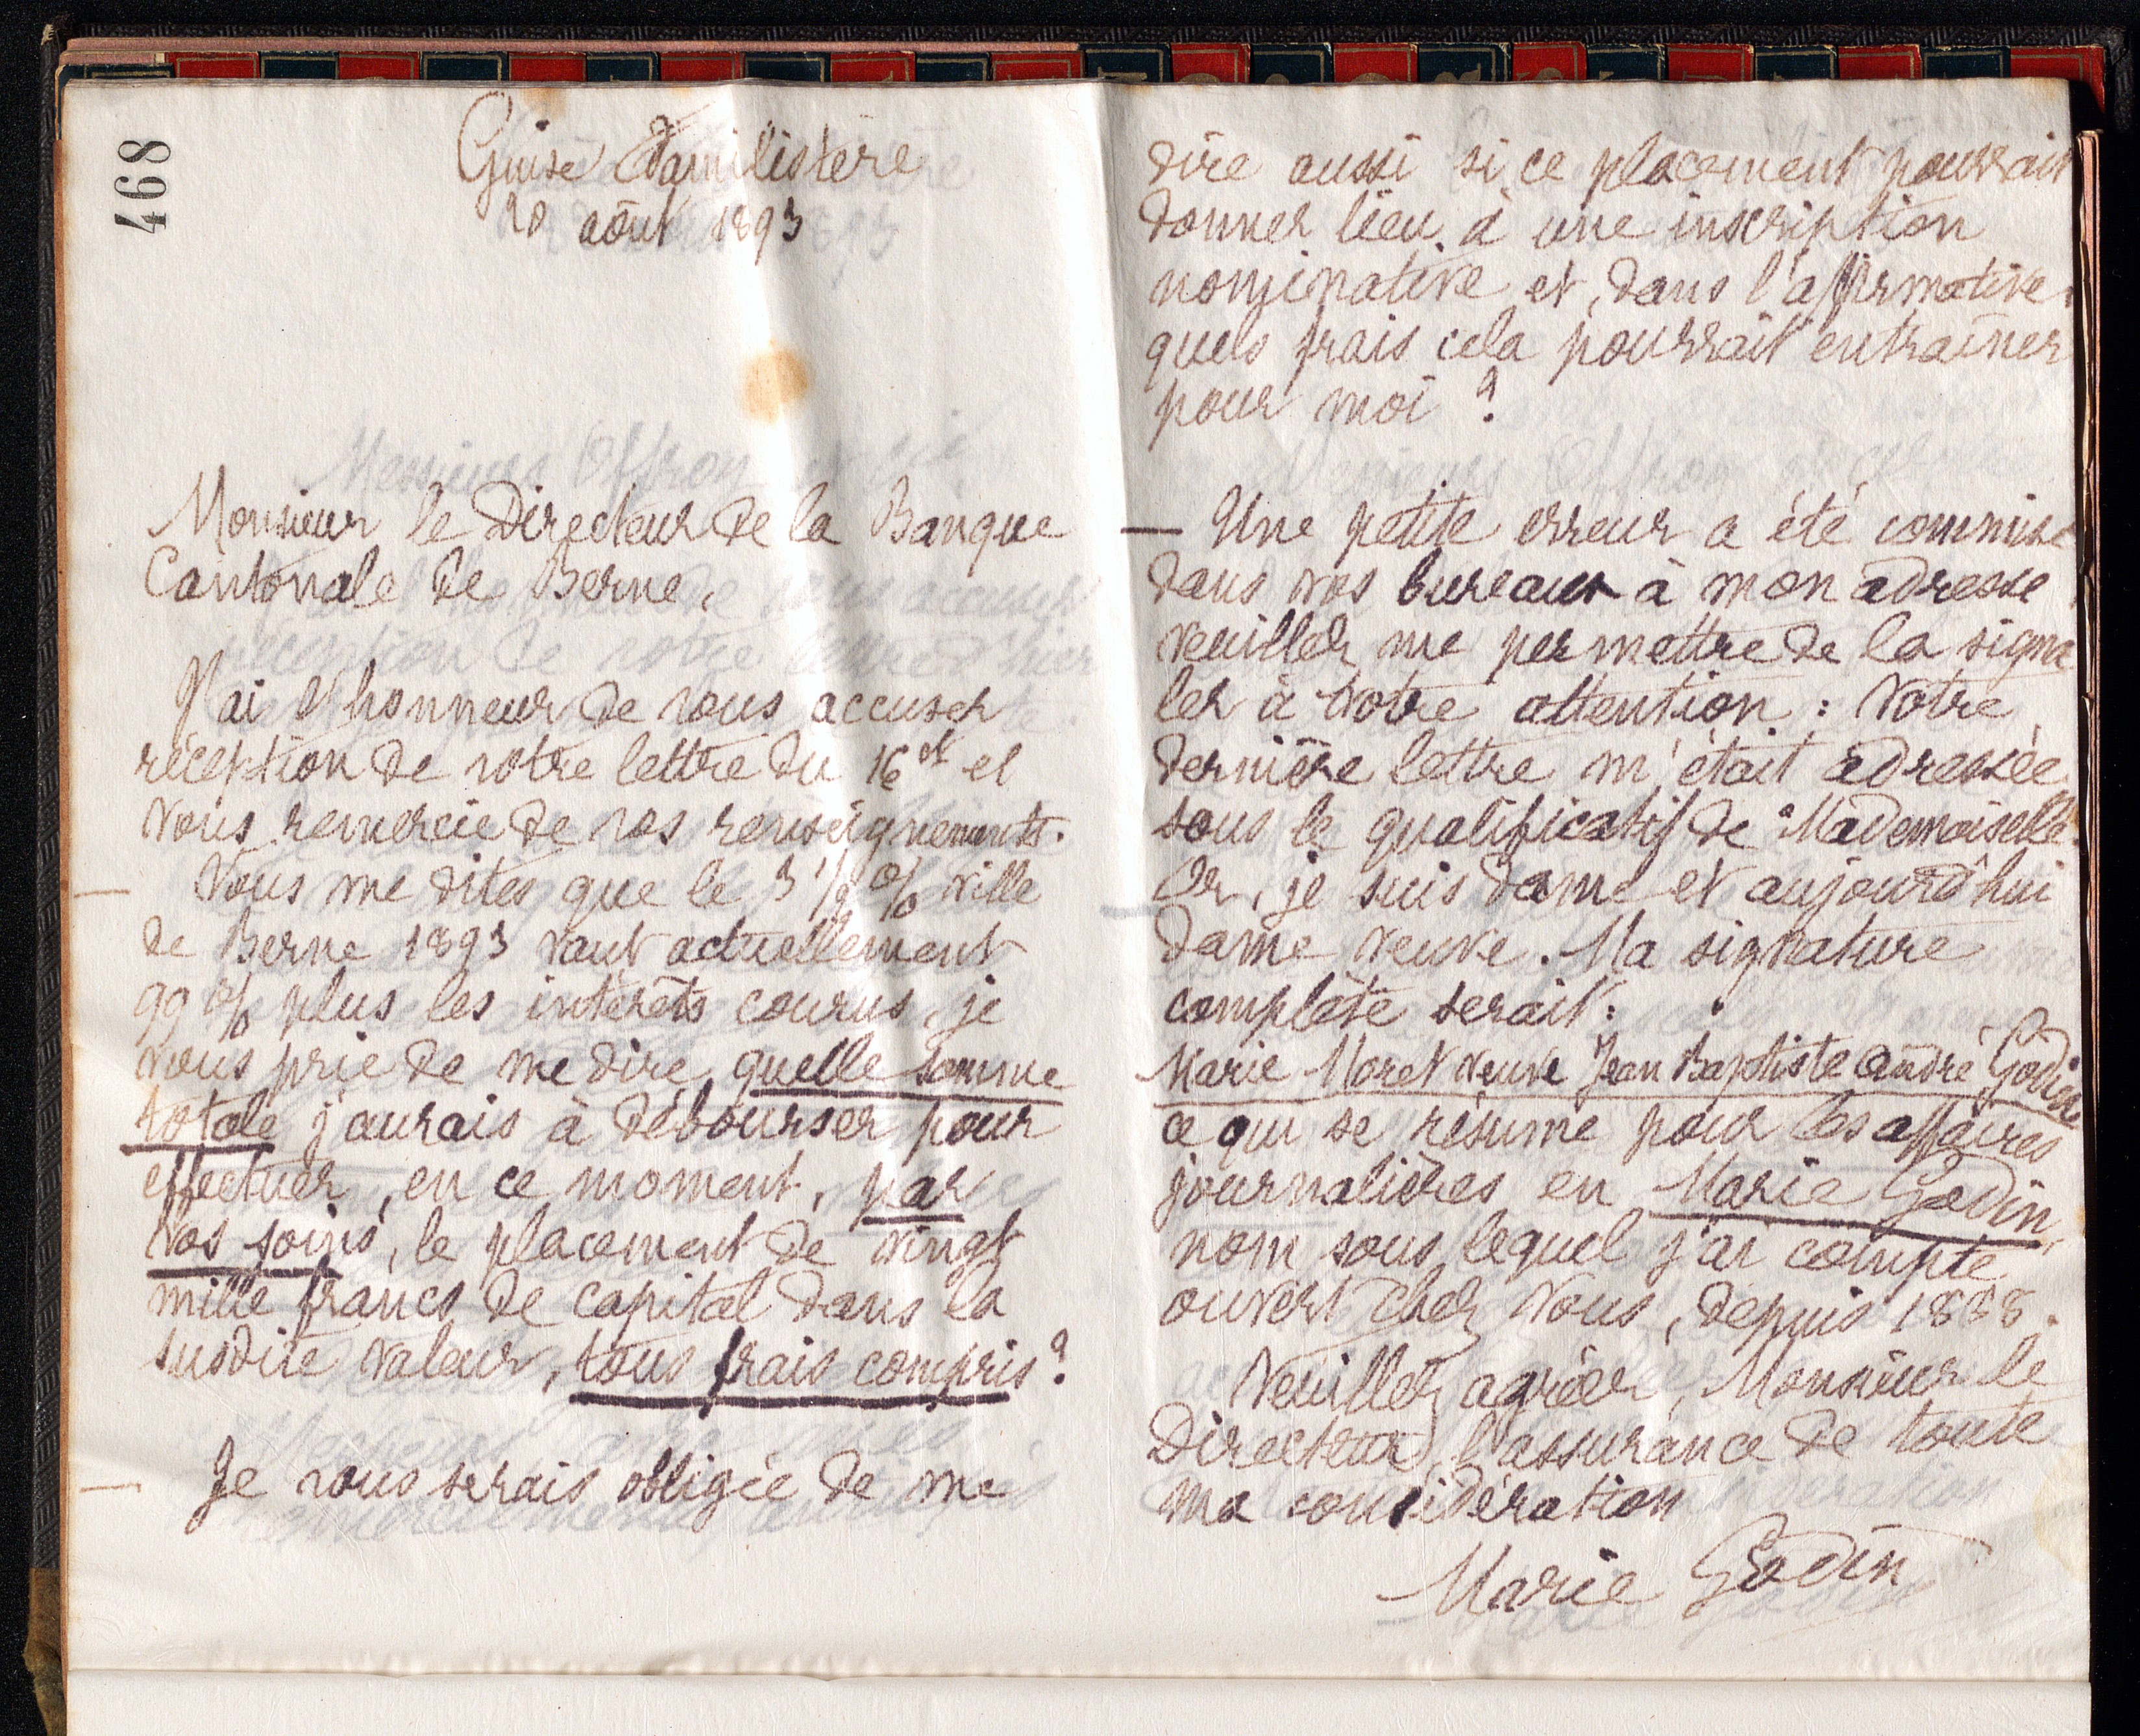 468
Guise Familistère
20 août 1893
Monsieur le Directeur de la Banque
Cantonale de Berne,
J'ai l'honneur de vous accuser
réception de votre lettre du 16 et
vous remercie de vos renseignements.
— Vous me dites que le 3 1/2 % ville
de Berne 1893 vaut actuellement
99 % plus les intérêts courus, je
vous prie de me dire quelle somme
totale j'aurais à débourser pour
effectuer, en ce moment, par
vos soins, le placement de vingt
mille francs de capital dans la
susdite valeur, tous frais compris ?
— Je vous serais obligée de me
dire aussi si ce placement pourrait
donner lieu à une inscription
nominative et, dans l'affirmative,
quels frais cela pourrait entraîner
pour moi ?
— Une petite erreur a été commise
dans vos bureaux à mon adresse
veuillez me permettre de la signa
ler à votre attention : Votre
dernière lettre m'était adressée
sous le qualificatif de "Mademoiselle"
Or, je suis dame et aujourd'hui
dame veuve. Ma signature
complète serait :
Marie Moret veuve Jean Baptiste André Godin
ce qui se résume pour les affaires
journalières en Marie Godin,
nom sous lequel j'ai compte
ouvert chez vous, depuis 1888.
Veuillez agréer, Monsieur le
Directeur, l'assurance de toute
ma considération
Marie Godin